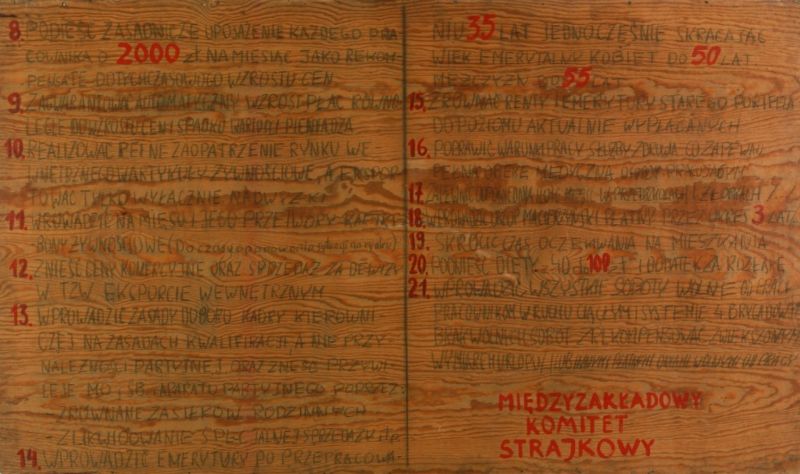 8. PODIEŚĆ ZASADNICZE UPOSAŻENIE KAŻDEGO PRA-
COWNIKA O 2000 zł NA MIESIĄC JAKO REKOM-
PENSATĘ DOTYCHCZASOWEGO WZROSTU CEN
9. ZAGWARANTOWAĆ AUTOMATYCZNY WZROST PŁAC RÓWNO-
LEGLE DO WZROSTU CEN I SPADKU WARTOŚCI PIENIĄDZA
10. REALIZOWAĆ PEŁNE ZAOPATRZENIE RYNKU WE-
WNĘTRZNEGO W ARTYKUŁY ŻYWNOŚCIOWE, A EKSPOR-
TOWAĆ TYLKO WYŁĄCZNIE NADWYŻKI
11. WPROWADZIĆ NA MIĘSO I JEGO PRZETWORY KARTKI-
BONY ŻYWNOŚCIOWE (Do czasu opanowania sytuacji na rynku)
12. ZNIEŚĆ CENY KOMERCYJNE ORAZ SPRZEDAŻ ZA DEWIZY
W TZW. EKSPORCIE WEWNĘTRZNYM
13. WPROWADZIĆ ZASADY DOBORU KADRY KIEROWNI
CZEJ NA ZASADACH KWALIFIKACJI, A NIE PRZY-
NALEŻNOŚCI PARTYJNEJ ORAZ ZNIEŚĆ PRZYWI-
LEJE MO, SB, APARATU PARTYJNEGO POPRZEZ:
- ZRÓWNANIE ZASIŁKÓW RODZINNYCH
- ZLIKWIDOWANIE SPECJALNEJ SPRZEDAŻY itp
14. WPROWADZIĆ EMERYTURY PO PRZEPRACOWA-
NIU 35 LAT JEDNOCZEŚNIE SKRACAJĄC
WIEK EMERYTALNY KOBIET DO 50 LAT
MĘŻCZYZN DO 55 LAT
15. ZRÓWNAĆ RENTY I EMERYTURY STAREGO PORTFELA
DO POZIOMU AKTUALNIE WYPŁACANYCH
16. POPRAWIĆ WARUNKI PRACY SŁUŻBY ZDROWIA CO ZAPEWNI
PEŁNĄ OPIEKĘ MEDYCZNĄ OSOBOM PRACUJĄCYM
17. ZAPEWNIĆ ODPOWIEDNIĄ ILOŚĆ MIEJSC W PRZEDSZKOLACH I ŻŁOBKACH
18. WPROWADZIĆ URLOP MACIERZYŃSKI PŁATNY PRZEZ OKRES 3 LAT
19. SKRÓCIĆ CZAS OCZEKIWANIA NA MIESZKANIA
20. PODNIEŚĆ DIETY z 40 do 100 zł I DODATEK ZA ROZŁĄKĘ
21. WPROWADZIĆ WSZYSTKIE SOBOTY WOLNE OD PRACY
PRACOWNIKOM W RUCHU CIĄGŁYM I SYSTEMIE 4 BRYGADOWYM
BRAK WOLNYCH SOBÓT ZREKOMPENSOWAĆ ZWIĘKSZONYM
WYMIAREM URLOPU LUB INNYMI PŁATNYMI DNIAMI WOLNYMI OD PRACY
MIĘDZYZAKŁADOWY
KOMITET
STRAJKOWY